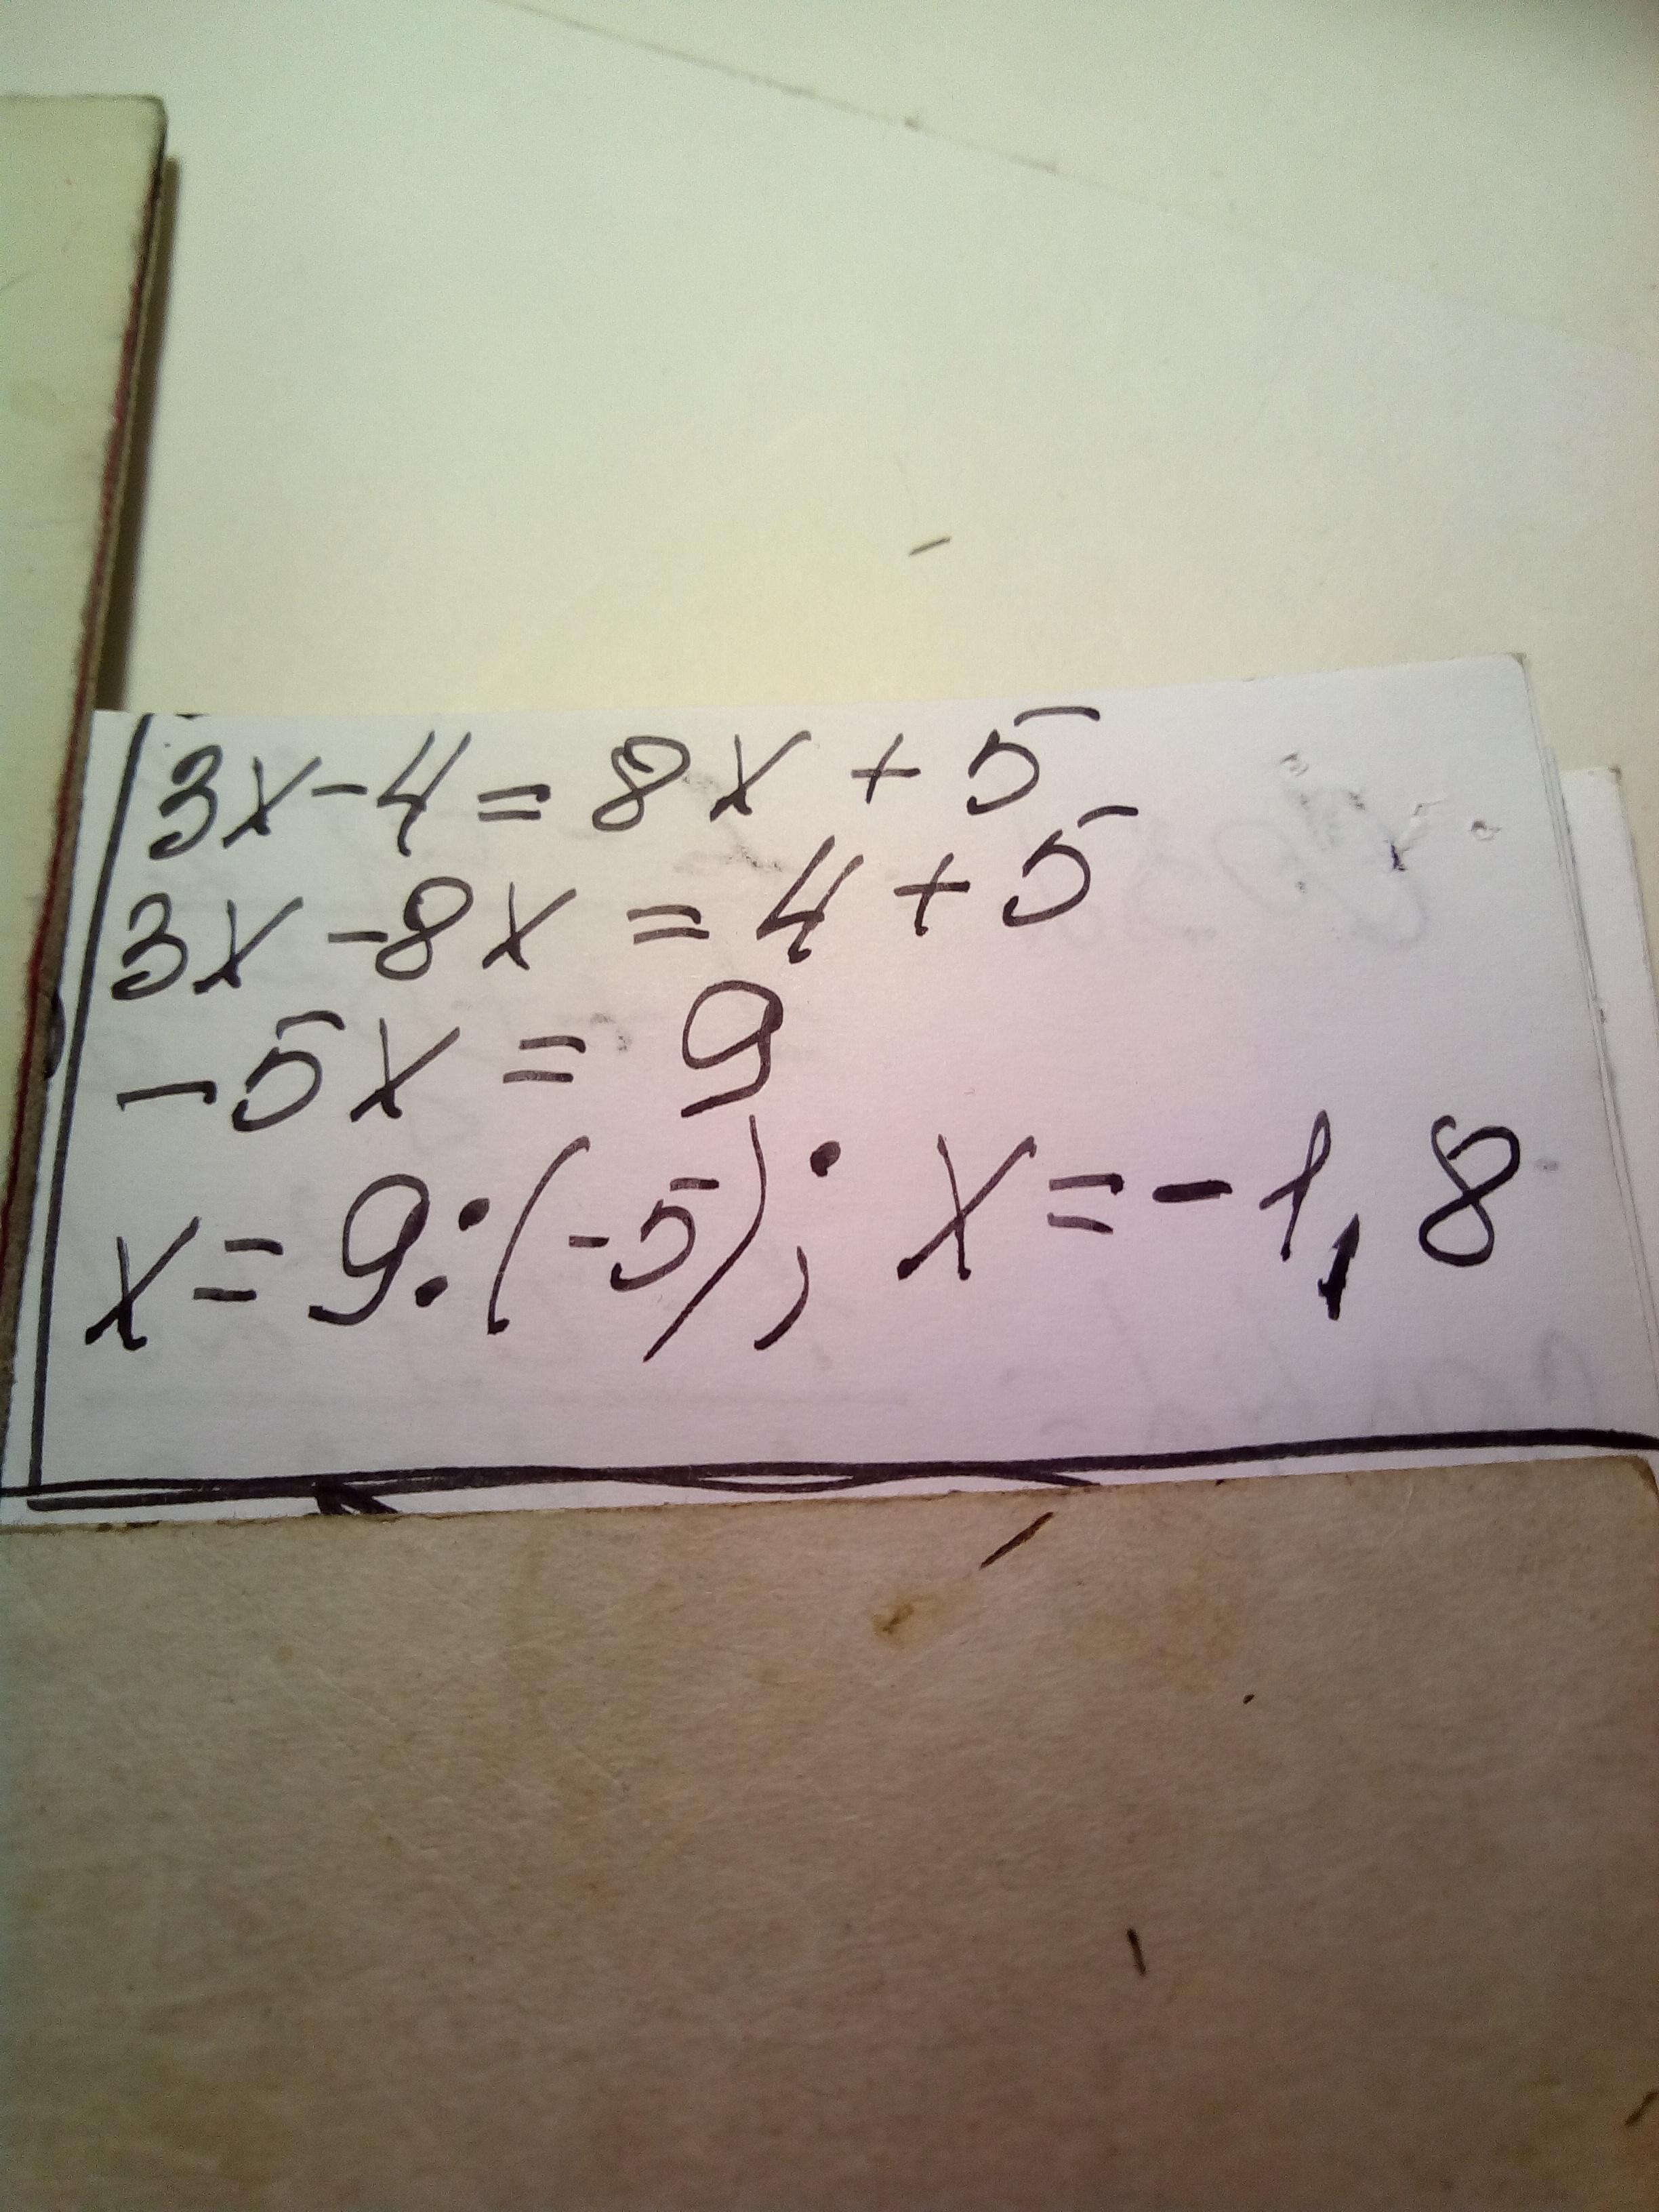 3x-4=8x+5
3x-8x=4+5
-5x=9
x=9:(-5); x=-1,8